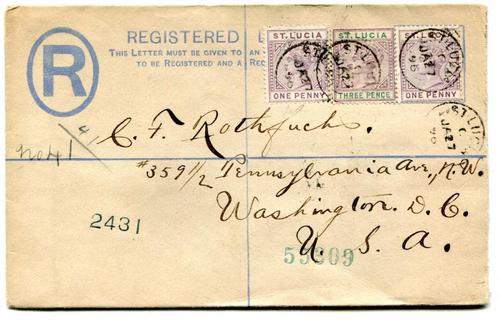 REGISTERED L
THIS LETTER MUST BE GIVEN TO AN
TO BE REGISTERED AND A REC
R
ST. LUCIA
ONE PENNY
ST. LUCIA
THREE PENCE
ST. LUCIA
ONE PENNY
ST. LUCIA
C
JA 27
96
C. F. Rothfuchs.
#359 1/2 Pennsylvania Ave, N.W.
Washington. D. C.
U. S. A.
2431
53809